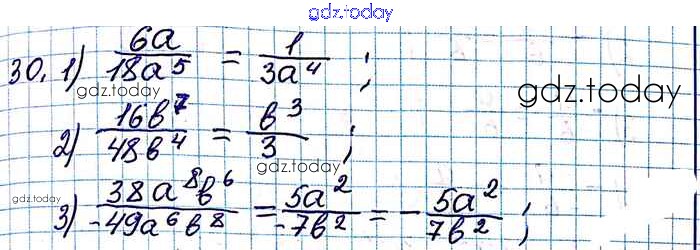 gdz.today
30. 1) 6a/18a⁵ = 1/3a⁴ ;
gdz.today
gdz.today
2) 16b⁷/48b⁴ = b³/3 ;
gdz.today
gdz.today
3) 38a⁸b⁶/-49a⁶b⁸ = 5a²/-7b² = - 5a²/7b² ;
gdz.today